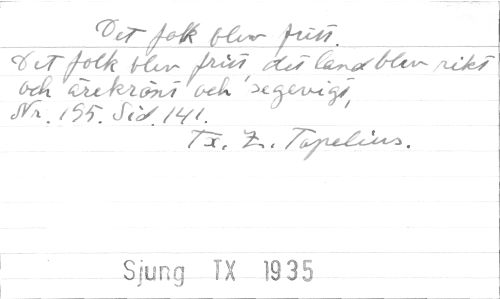 Det folk blev fritt.
Det folk blev fritt, det land blev rikt
och ärekrönt och segevigt,
Nr. 195. Sid. 141.
Tx. Z. Topelius.
Sjung IX 1935